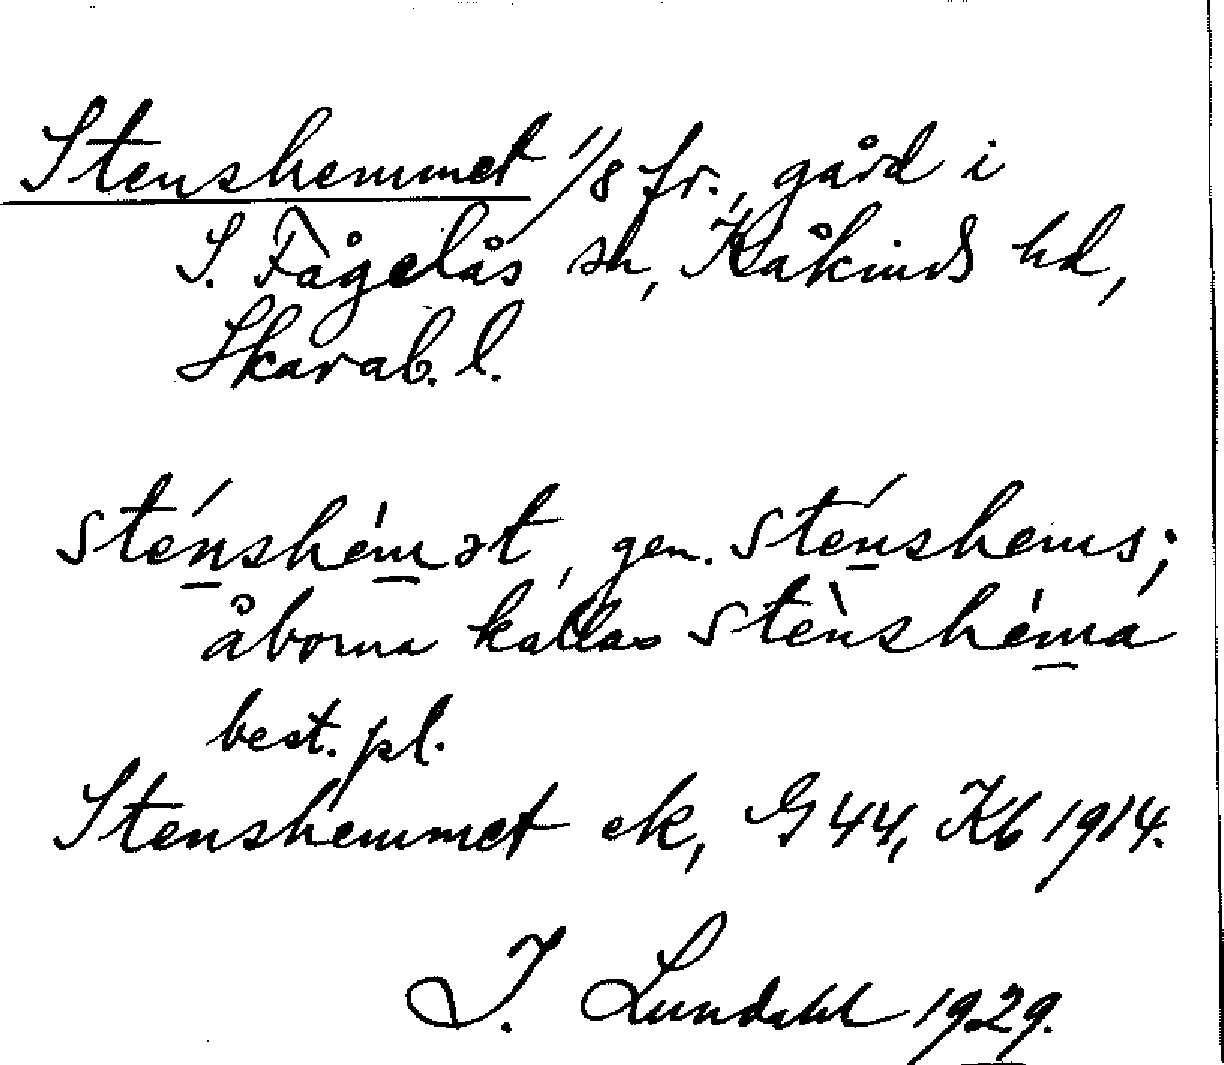 Stenshemmet 1/8 fr., gård i
S. Fågelås sn, Kåkinds hd,
Skarab. l.
sténshémət, gen. sténshems;
åborna kallas stènshéma
best. pl.
Stenshemmet ek, G 44, Kb 1914.
I. Lundahl 1929.